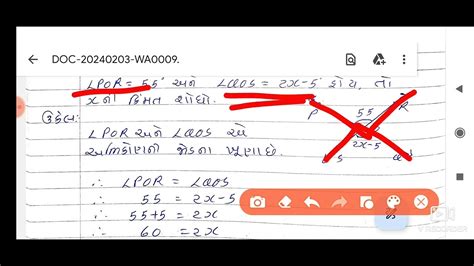 DOC-20240203-WA0009.
∠POR = 55° અને ∠QOS = 2x-5 હોય, તો
x ની કિંમત શોધો.
P
R
55
2x-5
S
Q
ઉકેલ:
∠POR અને ∠QOS એ
અભિકોણની જોડના ખૂણા છે.
∴ ∠POR = ∠QOS
∴ 55 = 2x-5
∴ 55+5 = 2x
∴ 60 = 2x